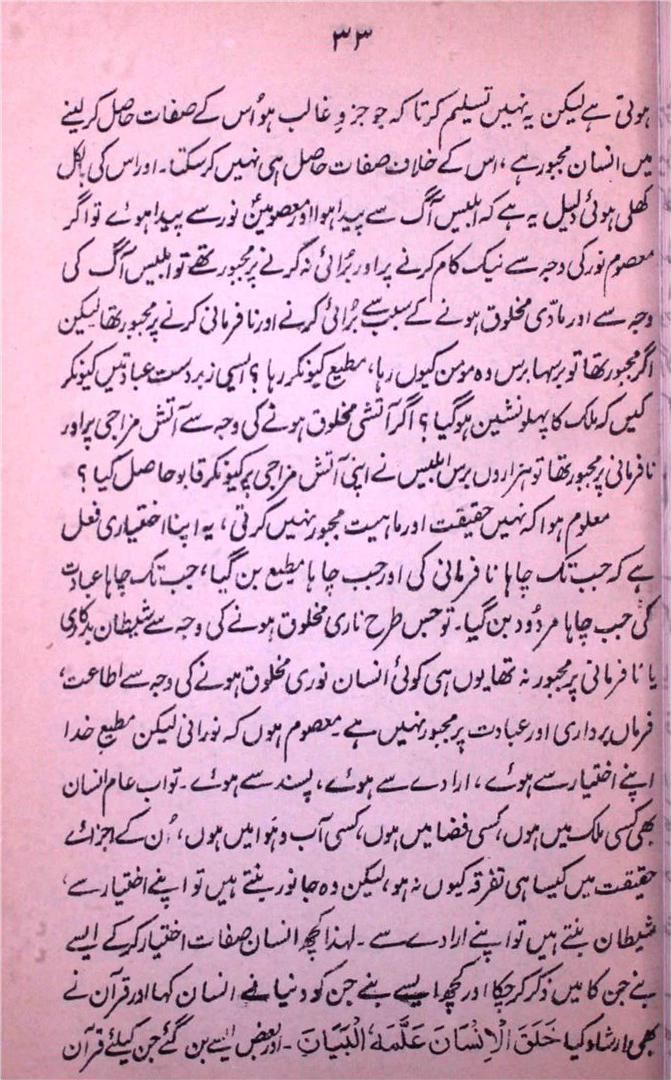 ۳۳
ہوتی ہے لیکن یہ نہیں تسلیم کرتا کہ جو جزو غالب ہو اُس کے صفات حاصل کر لینے
میں انسان مجبور ہے، اس کے خلاف صفات حاصل ہی نہیں کر سکتا۔ اور اس کی بالکل
کھلی ہوئی دلیل یہ ہے کہ ابلیس آگ سے پیدا ہوا اور معصومینؑ نور سے پیدا ہوئے تو اگر
معصوم نور کی وجہ سے نیک کام کرنے پر اور بُرائی نہ کرنے پر مجبور تھے تو ابلیس آگ کی
وجہ سے اور مادّی مخلوق ہونے کے سبب سے بُرائی کرنے اور نافرمانی کرنے پر مجبور تھا لیکن
اگر مجبور تھا تو برسہا برس وہ مومن کیوں رہا، مطیع کیونکر رہا؟ ایسی زبردست عبادتیں کیونکر
کیں کہ ملک کا پہلو نشین ہو گیا؟ اگر آتشی مخلوق ہونے کی وجہ سے آتش مزاجی پر اور
نافرمانی پر مجبور تھا تو ہزاروں برس ابلیس نے اپنی آتش مزاجی پر کیونکر قابو حاصل کیا؟
معلوم ہوا کہ نہیں حقیقت اور ماہیت مجبور نہیں کرتی، یہ اپنا اختیاری فعل
ہے کہ جب تک چاہا نافرمانی کی اور جب چاہا مطیع بن گیا، جب تک چاہا عبادت
کی جب چاہا مردُود بن گیا۔ تو جس طرح ناری مخلوق ہونے کی وجہ سے شیطان بدکاری
یا نافرمانی پر مجبور نہ تھا یوں ہی کوئی انسان نوری مخلوق ہونے کی وجہ سے اطاعت،
فرماں برداری اور عبادت پر مجبور نہیں ہے۔ معصوم ہوں کہ نورانی لیکن مطیعِ خدا
اپنے اختیار سے ہوئے، ارادے سے ہوئے، پسند سے ہوئے۔ تو اب عام انسان
بھی کسی ملک میں ہوں، کسی فضا میں ہوں، کسی آب و ہَوا میں ہوں، اُن کے اجزائے
حقیقت میں کیسا ہی تفرقہ کیوں نہ ہو، لیکن وہ جانور بنتے ہیں تو اپنے اختیار سے،
شیطان بنتے ہیں تو اپنے ارادے سے۔ لہٰذا کچھ انسان صفات اختیار کر کے ایسے
بنے جن کا میں ذکر کر چکا اور کچھ ایسے بنے جن کو دنیا نے انسان کہا اور قرآن نے
بھی ارشاد کیا خَلَقَ الْاِنْسَانَ عَلَّمَہُ الْبَیَانَ۔ اور بعض ایسے بن گئے جن کیلئے قرآن